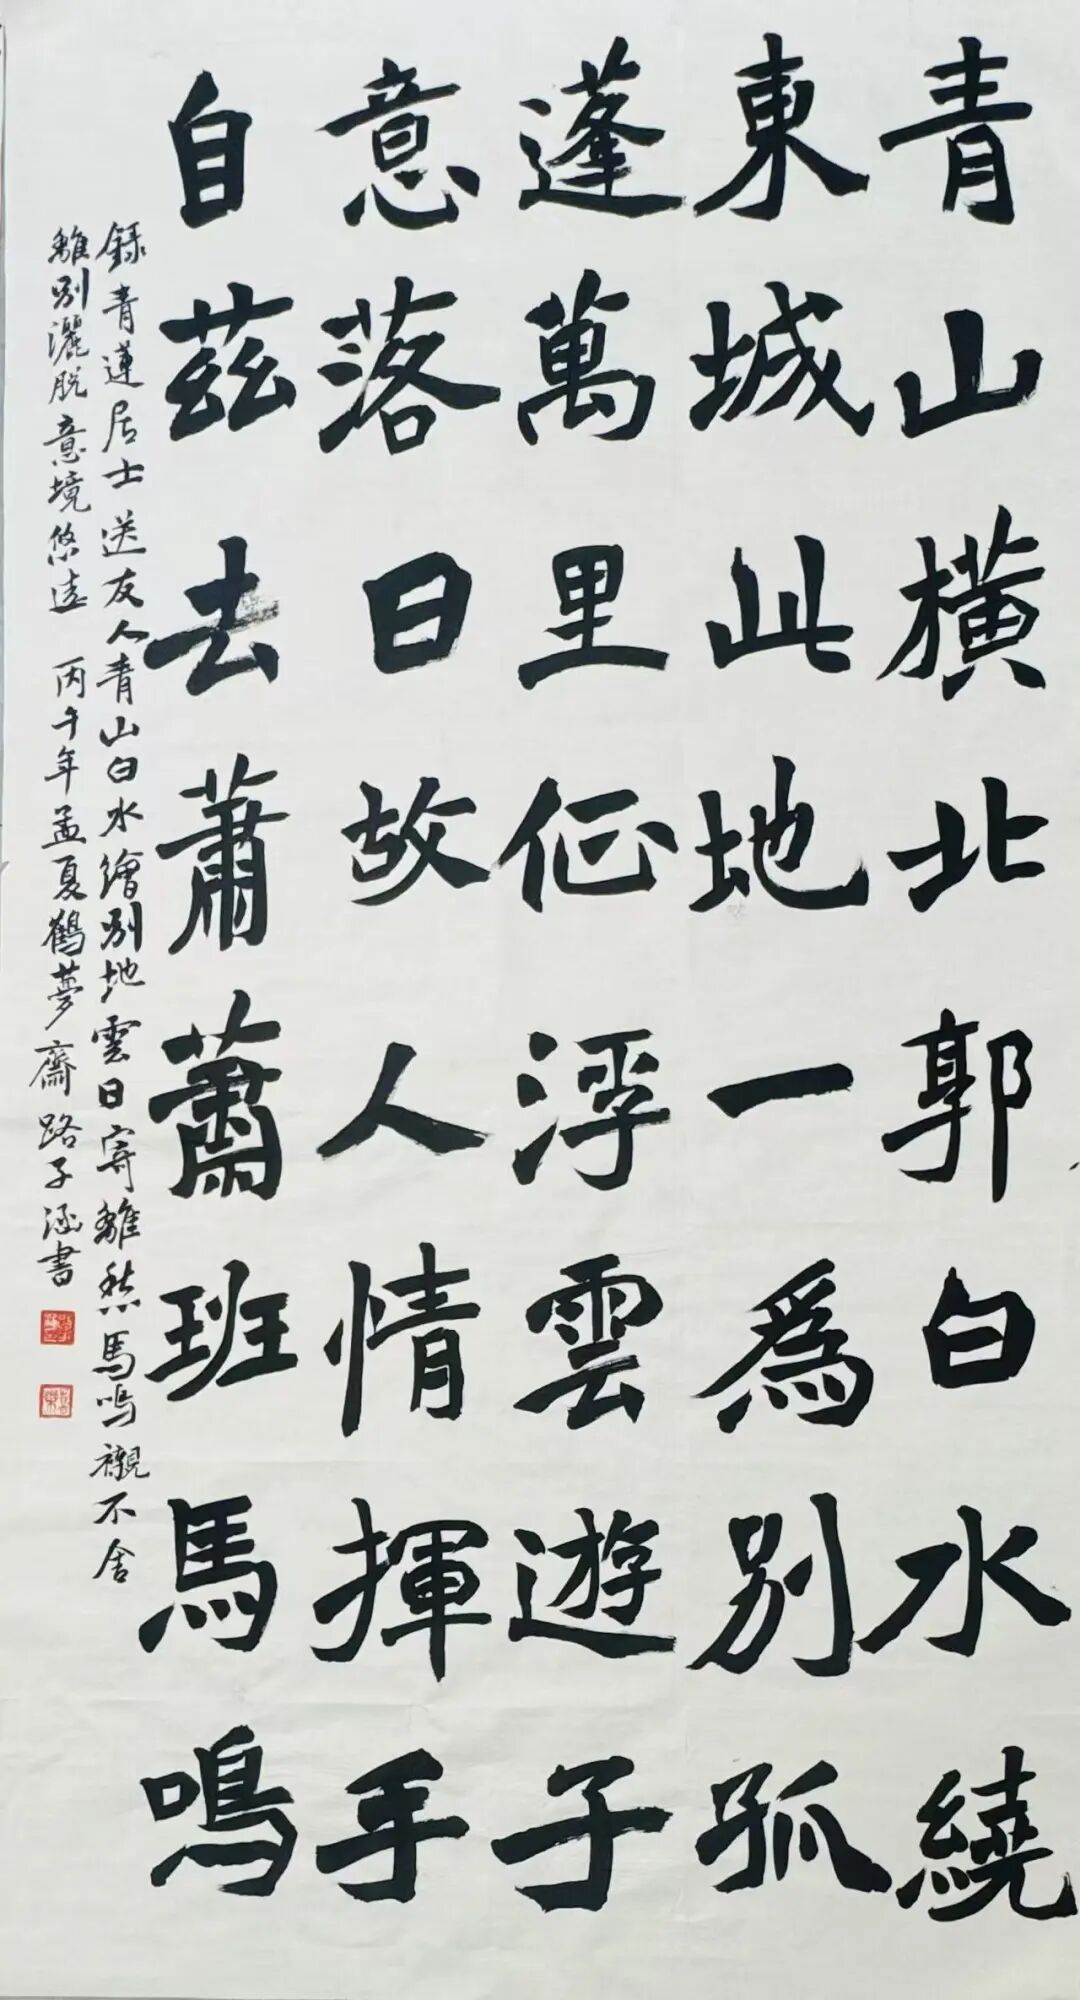 青山橫北郭白水繞
東城此地一爲別孤
蓬萬里征浮雲遊子
意落日故人情揮手
自茲去蕭蕭班馬鳴
錄青蓮居士送友人青山白水繪別地雲日寄離愁馬鳴襯不舍
離別灑脫意境悠遠 丙午年孟夏鶴夢齋路子涵書